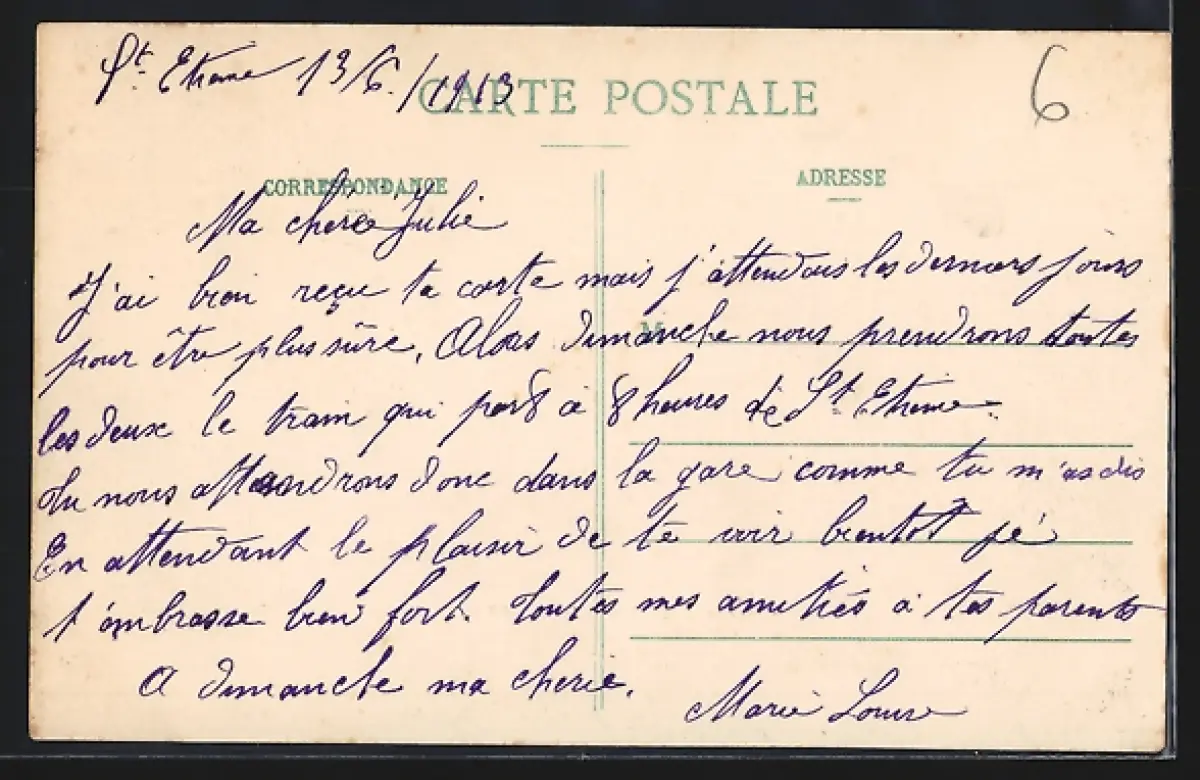 St Etienne 13/6/1913
6
CARTE POSTALE
CORRESPONDANCE
ADRESSE
Ma cherie Julie
J'ai bien reçu ta carte mais j'attendais les derniers jours
pour être plus sûre. Alors dimanche nous prendrons toutes
les deux le train qui part à 8 heures de St Etienne.
Tu nous attendrons donc dans la gare comme tu m'as dis
En attendant le plaisir de te voir bientôt je
t'embrasse bien fort. Toutes mes amitiés à tes parents
A dimanche ma cherie.
Marie Louise